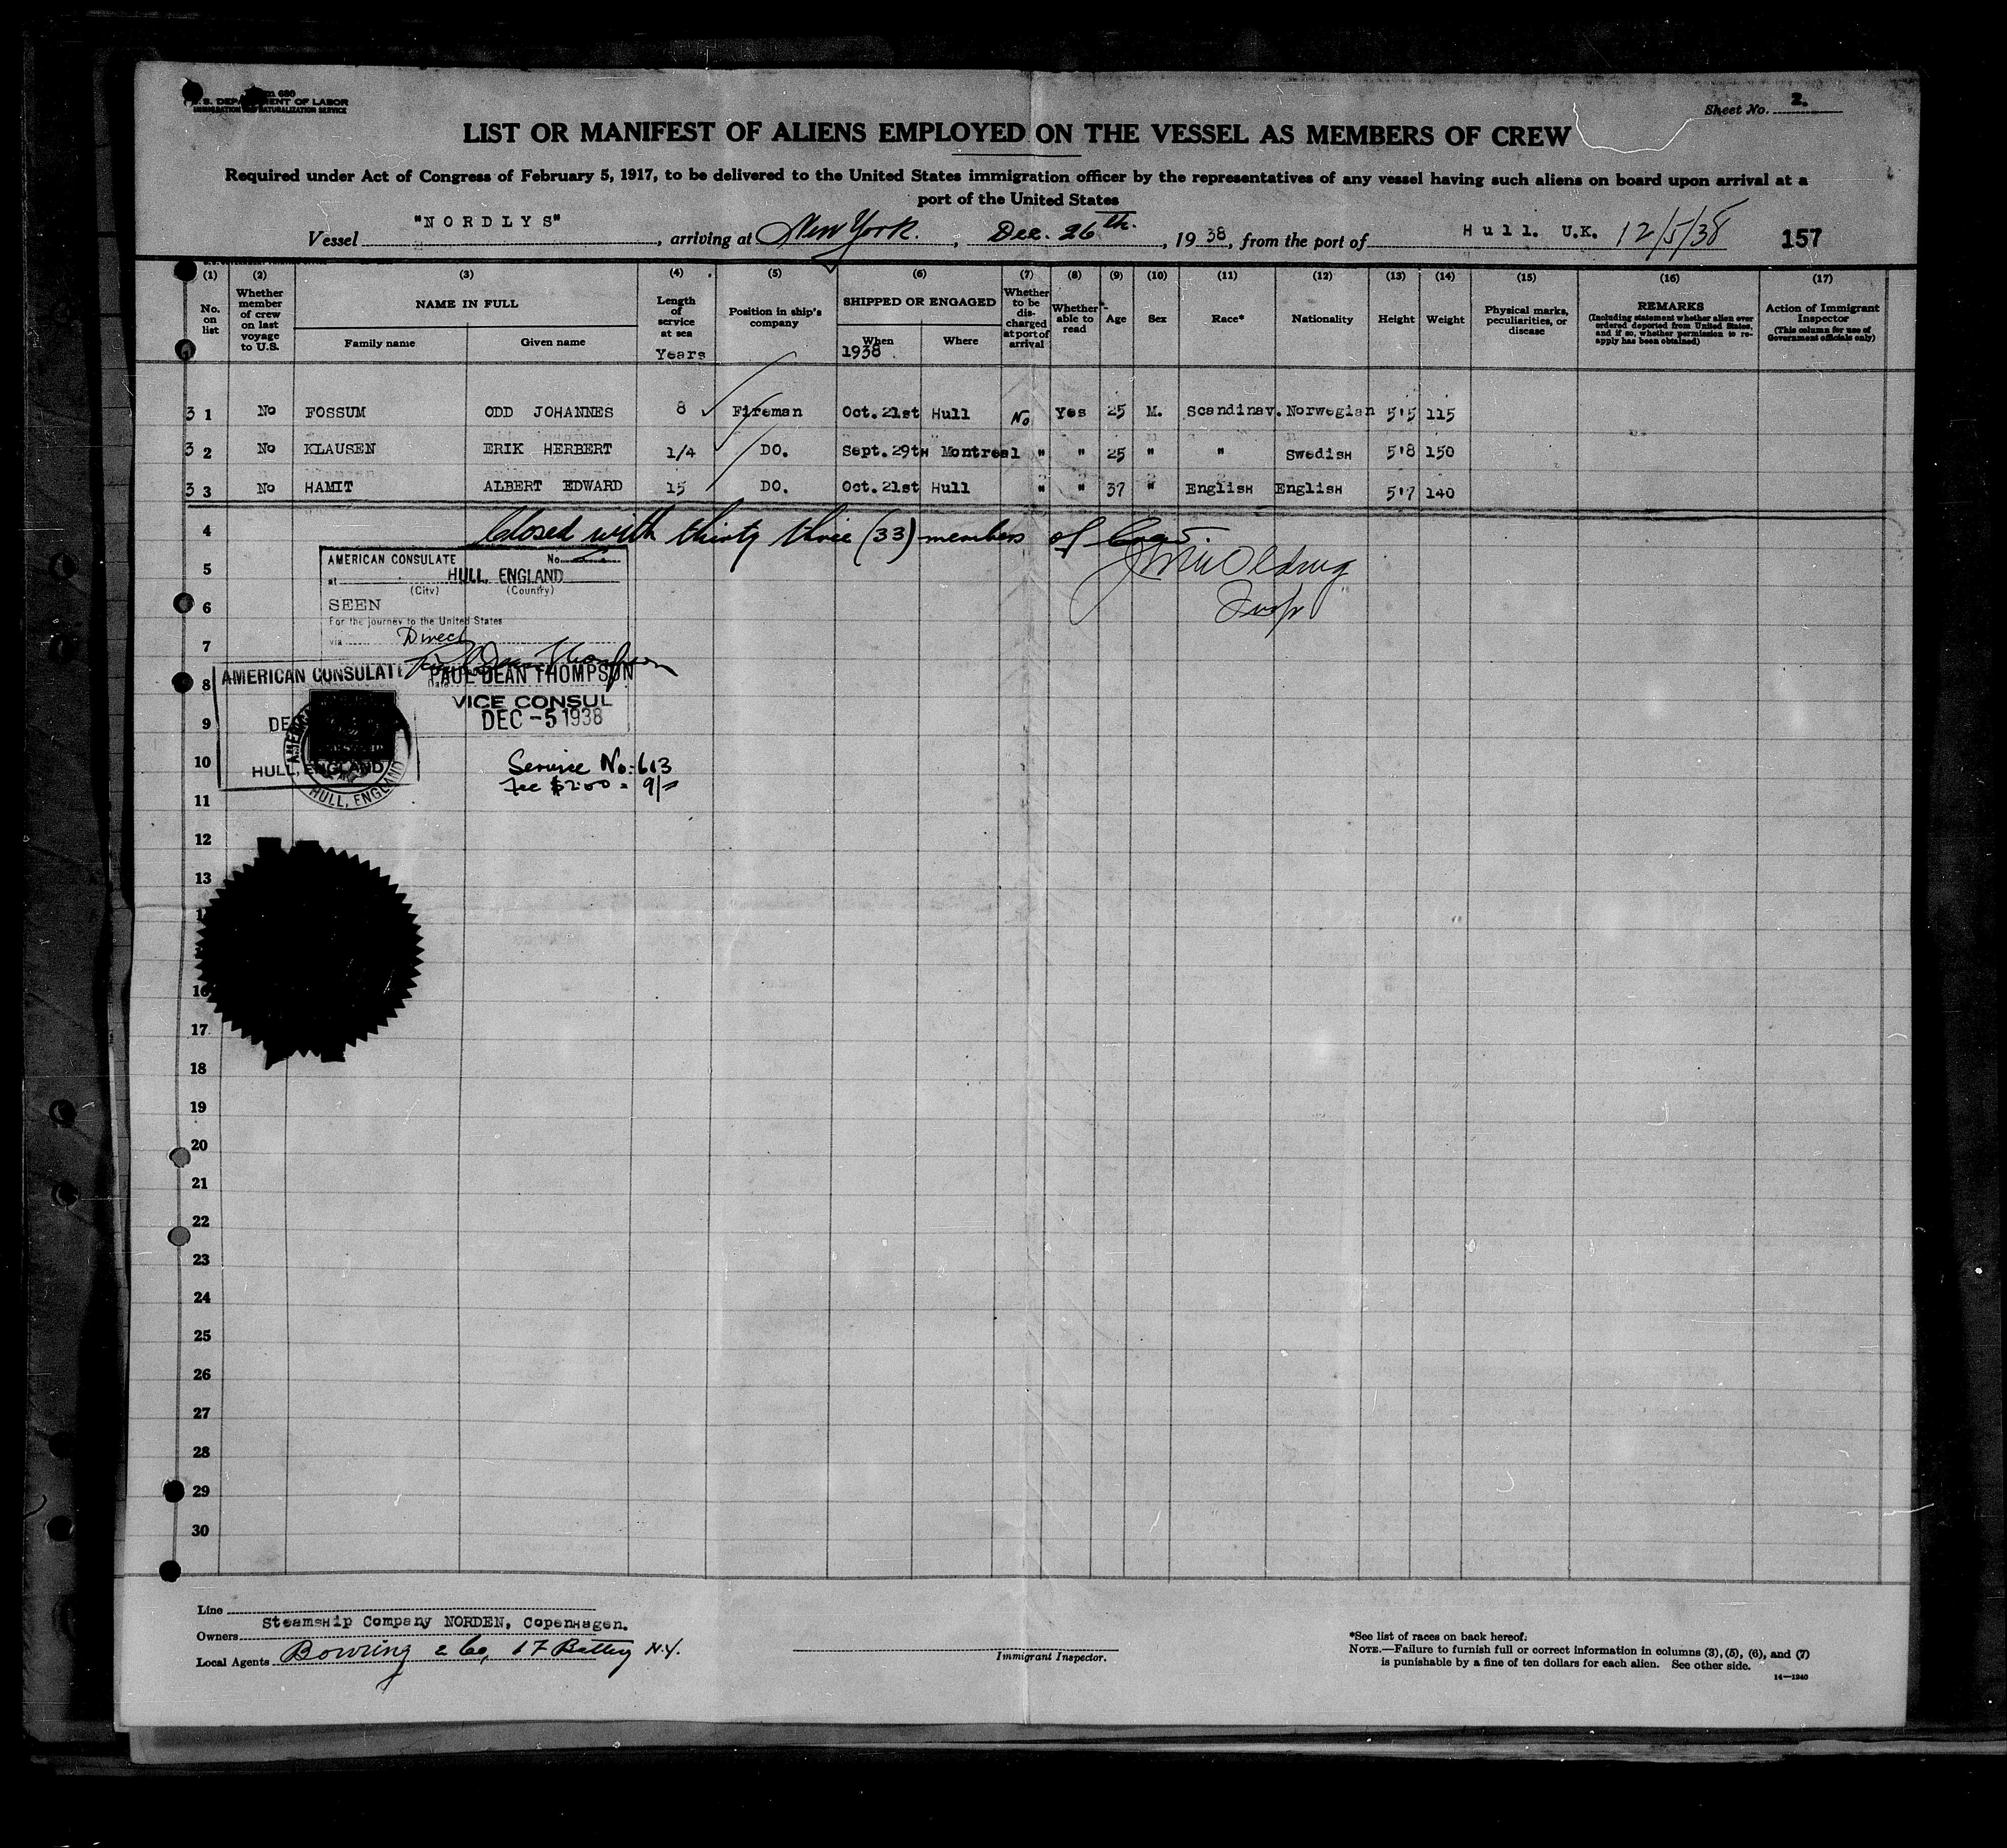 Sheet No. 2.
U.S. DEPARTMENT OF LABOR
IMMIGRATION AND NATURALIZATION SERVICE
LIST OR MANIFEST OF ALIENS EMPLOYED ON THE VESSEL AS MEMBERS OF CREW
Required under Act of Congress of February 5, 1917, to be delivered to the United States immigration officer by the representatives of any vessel having such aliens on board upon arrival at a
port of the United States
Vessel "NORDLYS", arriving at New York., Dec. 26th., 1938, from the port of Hull. U.K. 12/5/38 157
(1) (2) (3) (4) (5) (6) (7) (8) (9) (10) (11) (12) (13) (14) (15) (16) (17)
No. on list
Whether member of crew on last voyage to U.S.
NAME IN FULL
Family name
Given name
Length of service at sea
Years
Position in ship's company
SHIPPED OR ENGAGED
When
1938
Where
Whether to be discharged at port of arrival
Whether able to read
Age
Sex
Race*
Nationality
Height
Weight
Physical marks, peculiarities, or disease
REMARKS
(Including statement whether alien ever ordered deported from United States, and if so, whether permission to re-apply has been obtained)
Action of Immigrant Inspector
(This column for use of Government officials only)
3 1 No FOSSUM ODD JOHANNES 8 Fireman Oct. 21st Hull No Yes 25 M. Scandinav. Norwegian 5'5 115
3 2 No KLAUSEN ERIK HERBERT 1/4 DO. Sept. 29th Montreal " " 25 " " Swedish 5'8 150
3 3 No HAMIT ALBERT EDWARD 15 DO. Oct. 21st Hull " " 37 " English English 5'7 140
4
Closed with thirty three (33) members of Crew.
5
6
7
8
9
10
11
12
13
16
17
18
19
20
21
22
23
24
25
26
27
28
29
30
AMERICAN CONSULATE No.
at HULL, ENGLAND
(City) (Country)
SEEN
For the journey to the United States
via Direct
PAUL DEAN THOMPSON
VICE CONSUL
DEC -5 1938
AMERICAN CONSULATE
HULL, ENGLAND
HULL, ENGLAND
Service No: 613
Fee $2.00 = 9/=
Line
Owners Steamship Company NORDEN, Copenhagen.
Local Agents Bowring & Co, 17 Battery N.Y.
Immigrant Inspector.
*See list of races on back hereof.
NOTE.—Failure to furnish full or correct information in columns (3), (5), (6), and (7)
is punishable by a fine of ten dollars for each alien. See other side.
14—1240